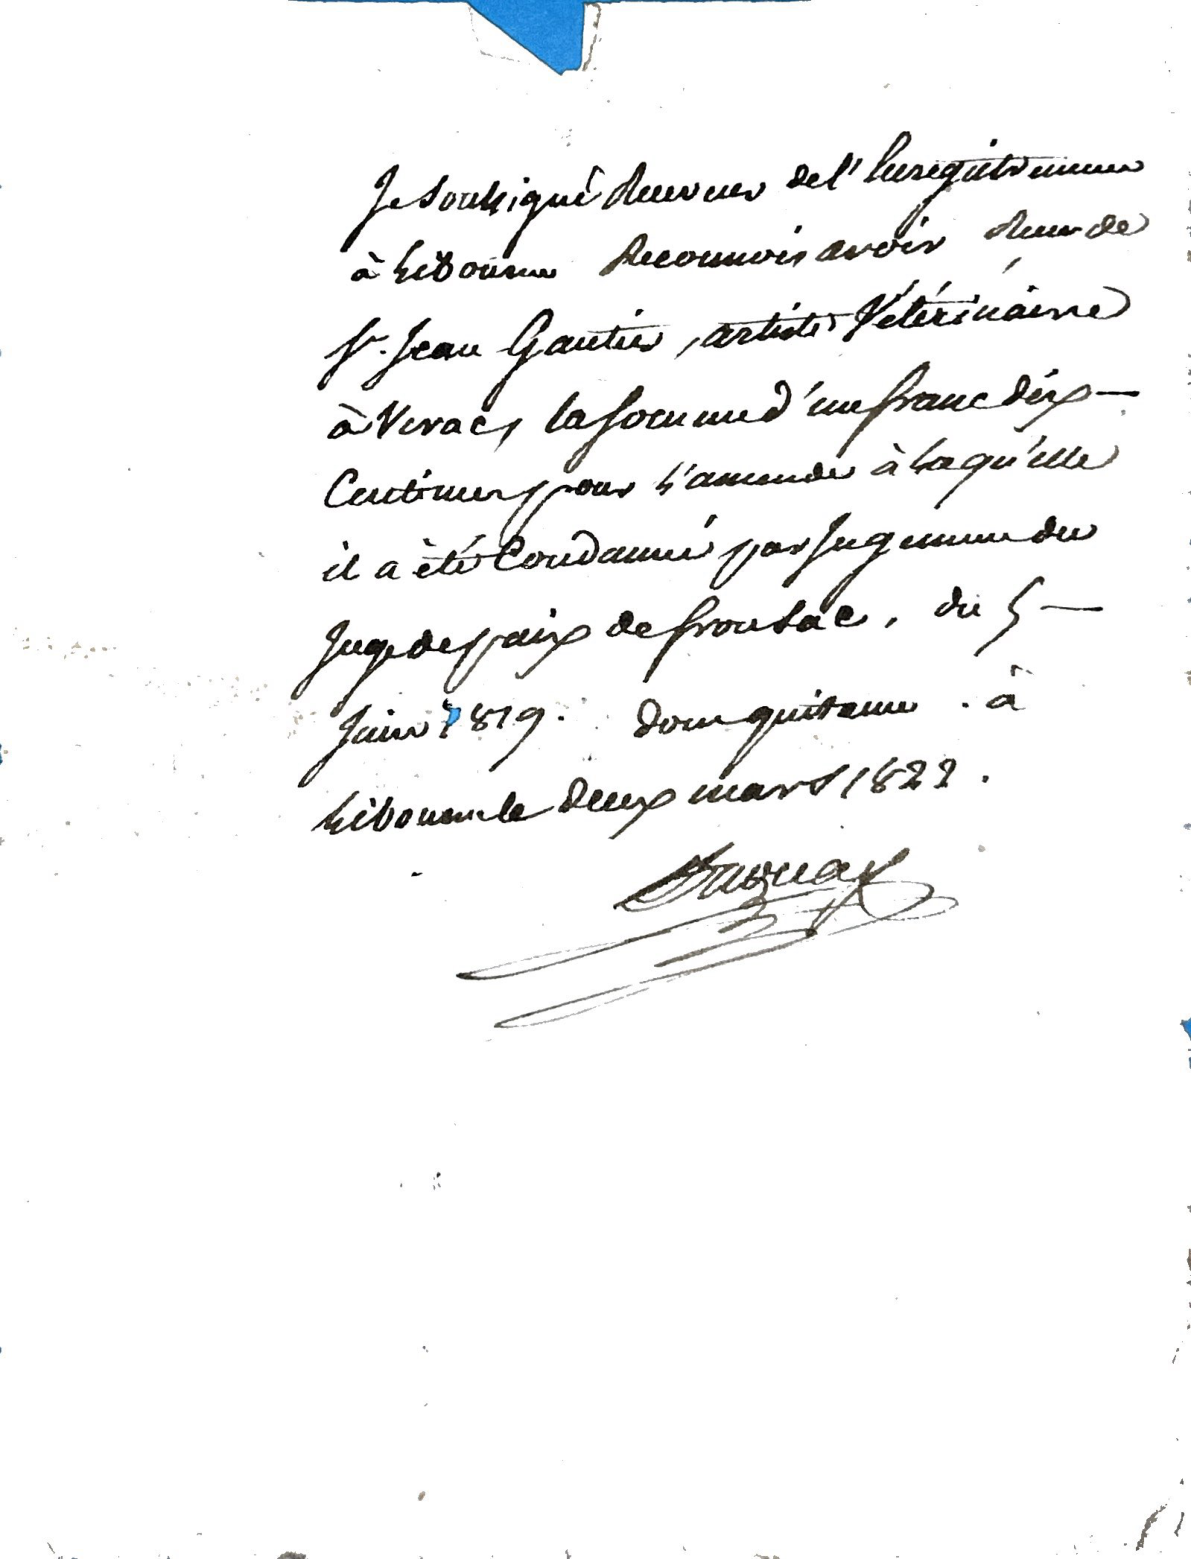 Je soussigné Receveur de l'Enregistrement
à Libourne Reconnois avoir Reçu de
Sr. Jean Gautier, artiste Vétérinaire
à Verac, la somme d'un franc dix —
Centimes pour L'amende à Laqu'elle
il a été Condamné par Jugement du
Juge de paix de fronsac, du 5 —
Juin 1819. dont quitance. à
Libourne le deux mars 1822.